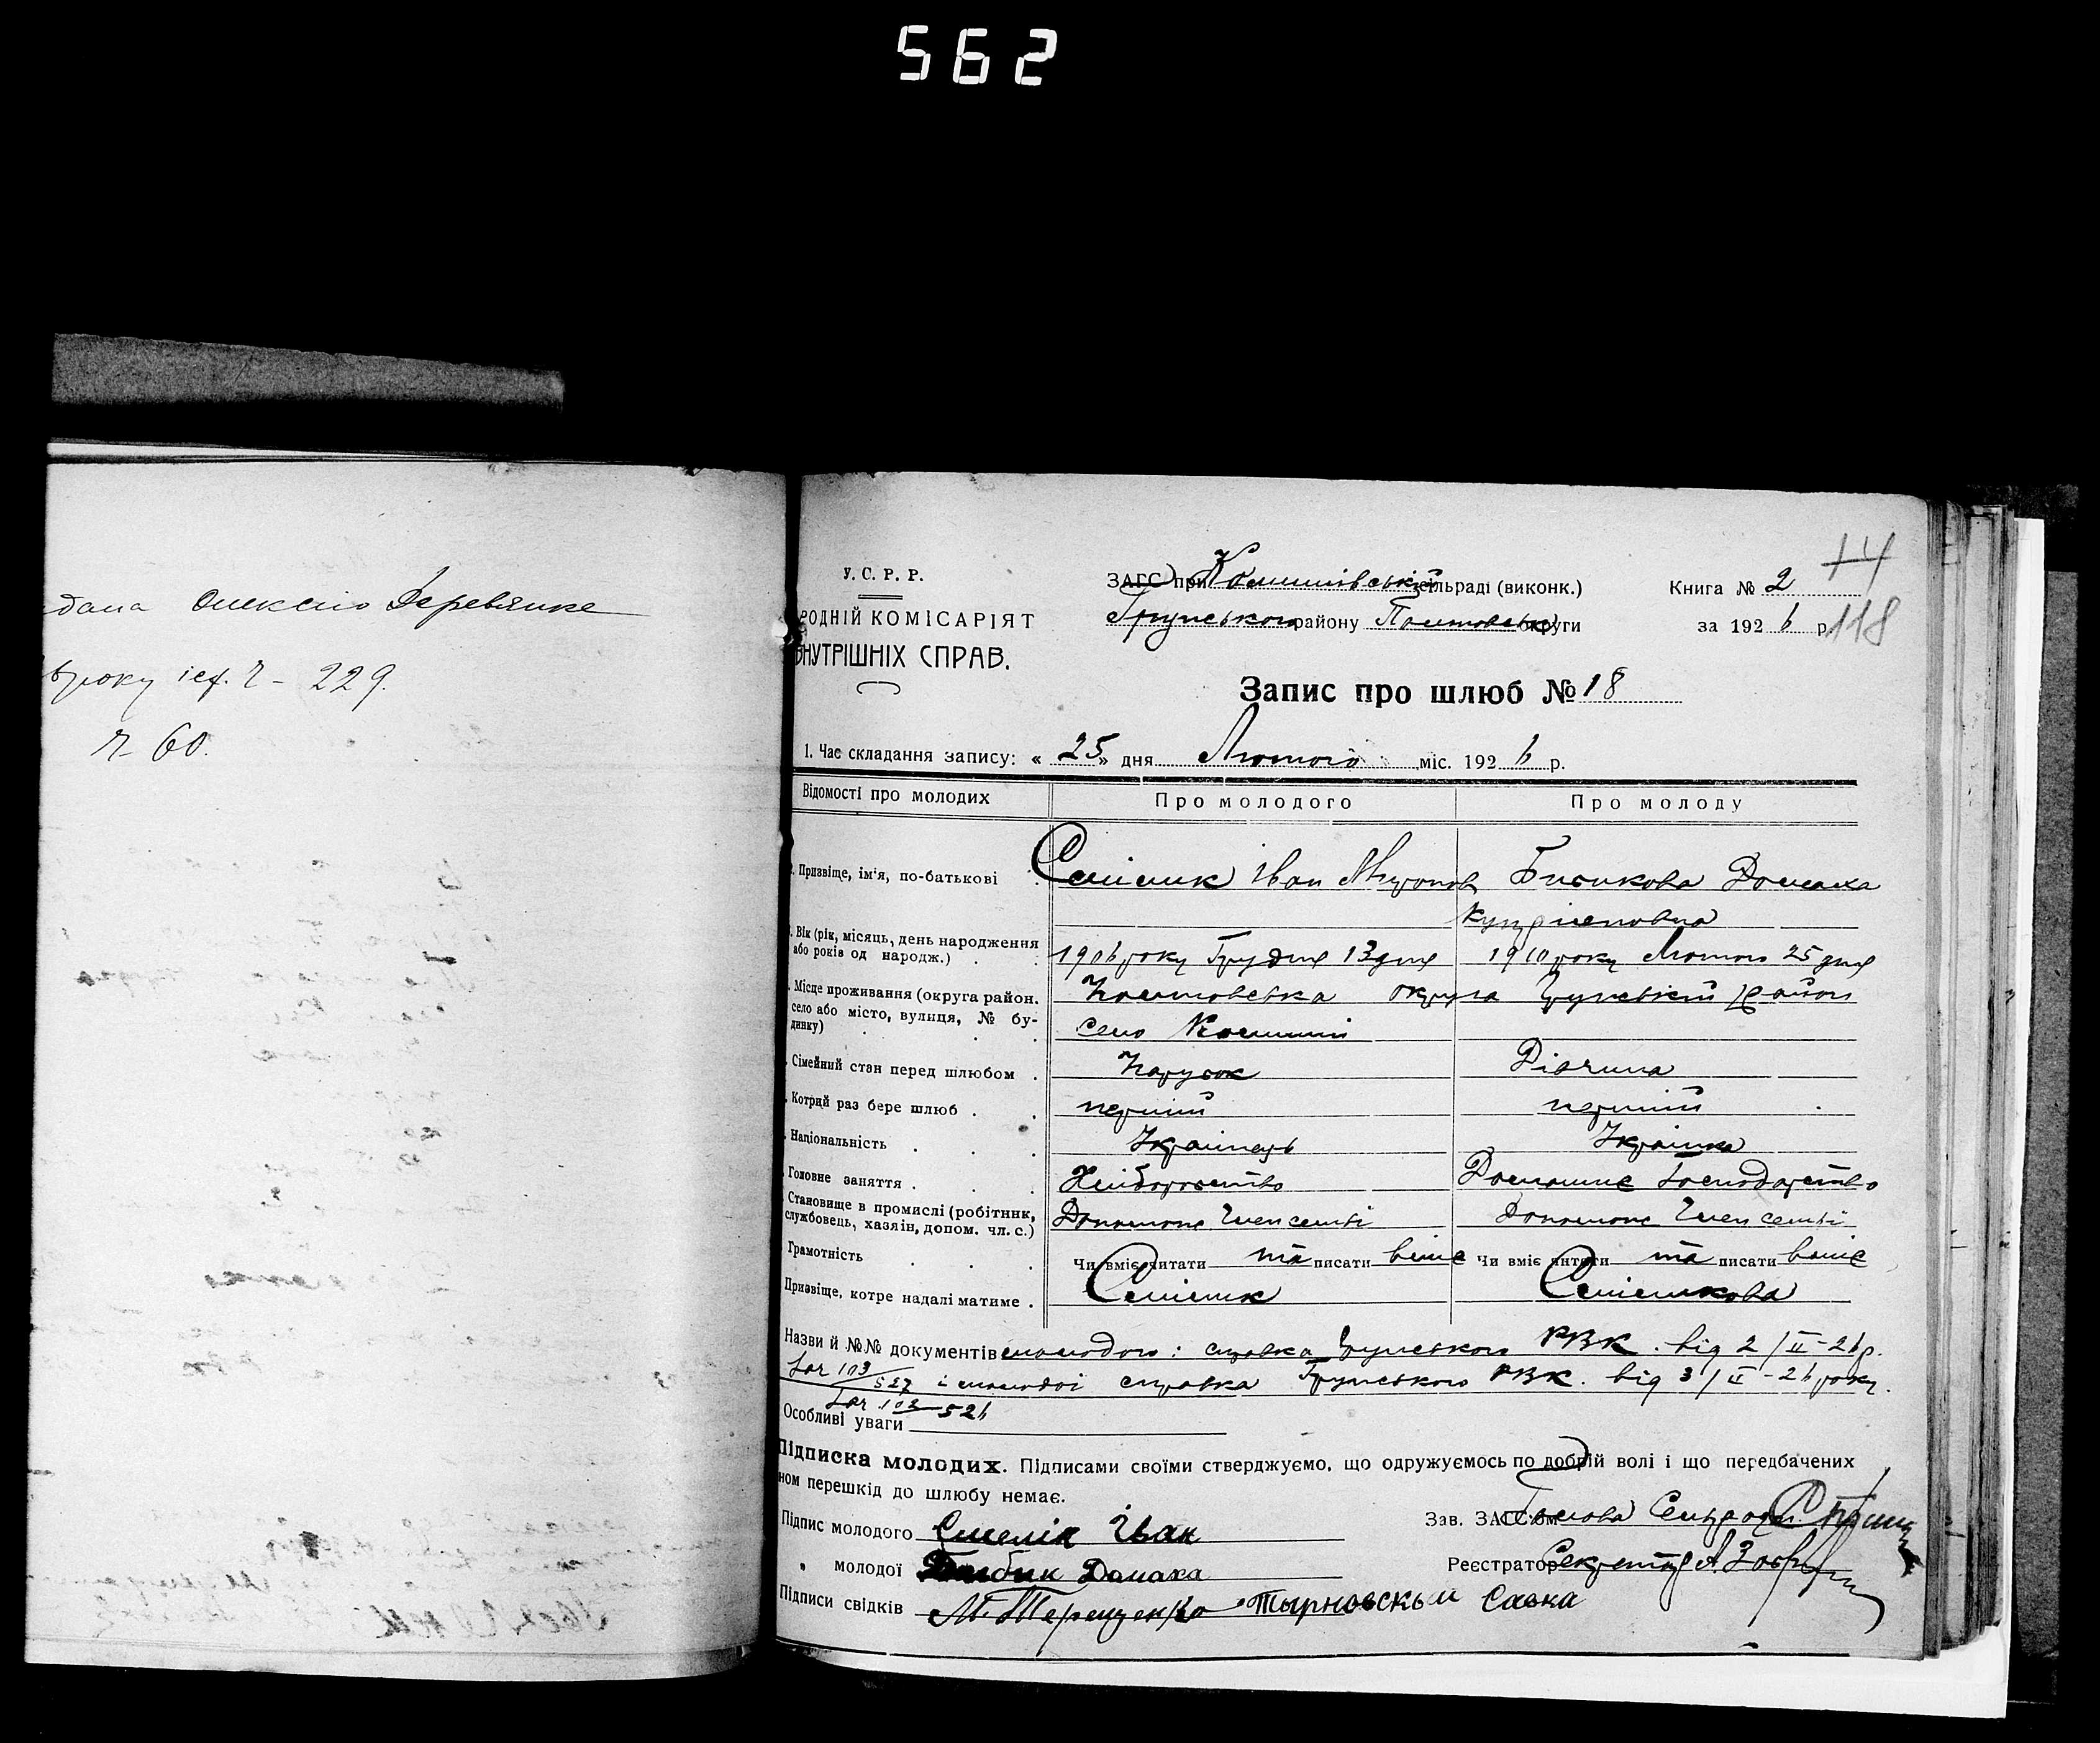 562
дана Олексію Деревянке
6 року ісх. Ч - 229.
Ч 60.
У. С. Р. Р.
РОДНІЙ КОМІСАРІЯТ
ВНУТРІШНІХ СПРАВ.
ЗАГС при сільраді (виконк.)
Грунського району Полтовської округи
Книга № 2
за 1926 р.
14
118
Запис про шлюб № 18
1. Час складання запису: « 25 » дня Лютого міс. 1926 р.
Відомості про молодих Про молодого Про молоду
Призвіще, ім'я, по-батькові Іван Миронов Домаха
Вік (рік, місяць, день народження або років од народж.) 1906 року Грудня 13 дня 1910 року Лютого 25 дня
Місце проживання (округа район, село або місто, вулиця, № будинку) Полтовська округа Грунський район
село
Сімейний стан перед шлюбом Парубок Дівчина
Котрий раз бере шлюб перший перший
Національність Українець Українка
Головне заняття Хліборобство Домашнє Господарство
Становище в промислі (робітник, службовець, хазяін, допом. чл. с.) Допоможе Член семьі Допоможе Член семьі
Грамотність Чи вміє читати та писати вміє Чи вміє читати та писати вміє
Призвіще, котре надалі матиме
Назви й №№ документів молодого: справка Грунського РВК. від 2/II-26 р.
103/527 і молодої справка Грунського РВК. від 3/II-26 року.
103 526
Особливі уваги
Підписка молодих. Підписами своїми стверджуємо, що одружуємось по добрій волі і що передбачених
ном перешкід до шлюбу немає.
Підпис молодого Смелік Іван
Зав. ЗАГС'ом Голова Сильради
„ молодої Домаха
Реєстратор Секретарь
Підписи свідків М. Терещенко Тырновскьи Савка